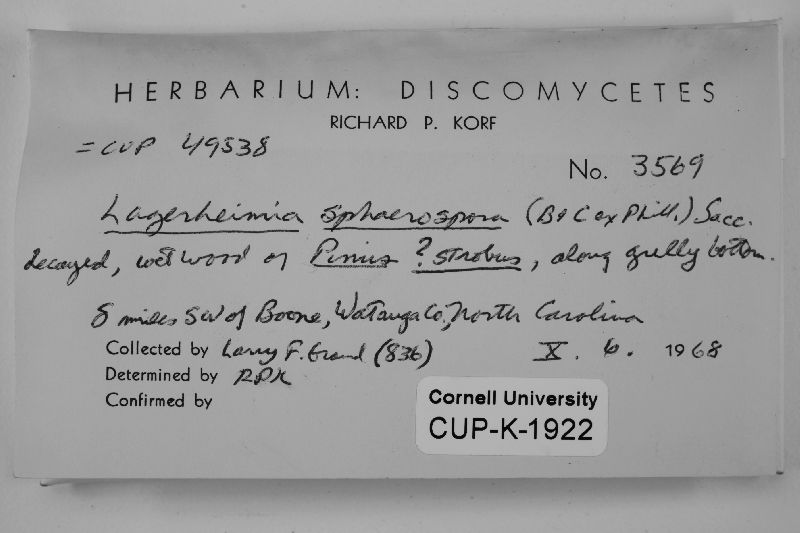 HERBARIUM: DISCOMYCETES
RICHARD P. KORF
= CUP 49538
No. 3569
Lagerheimia sphaerospora (B & C ex Phill.) Sacc.
decayed, wet wood of Pinus ? strobus, along gully bottom.
8 miles SW of Boone, Watauga Co, North Carolina
Collected by Larry F. Grand (836) X. 6. 1968
Determined by RPK
Confirmed by
Cornell University
CUP-K-1922